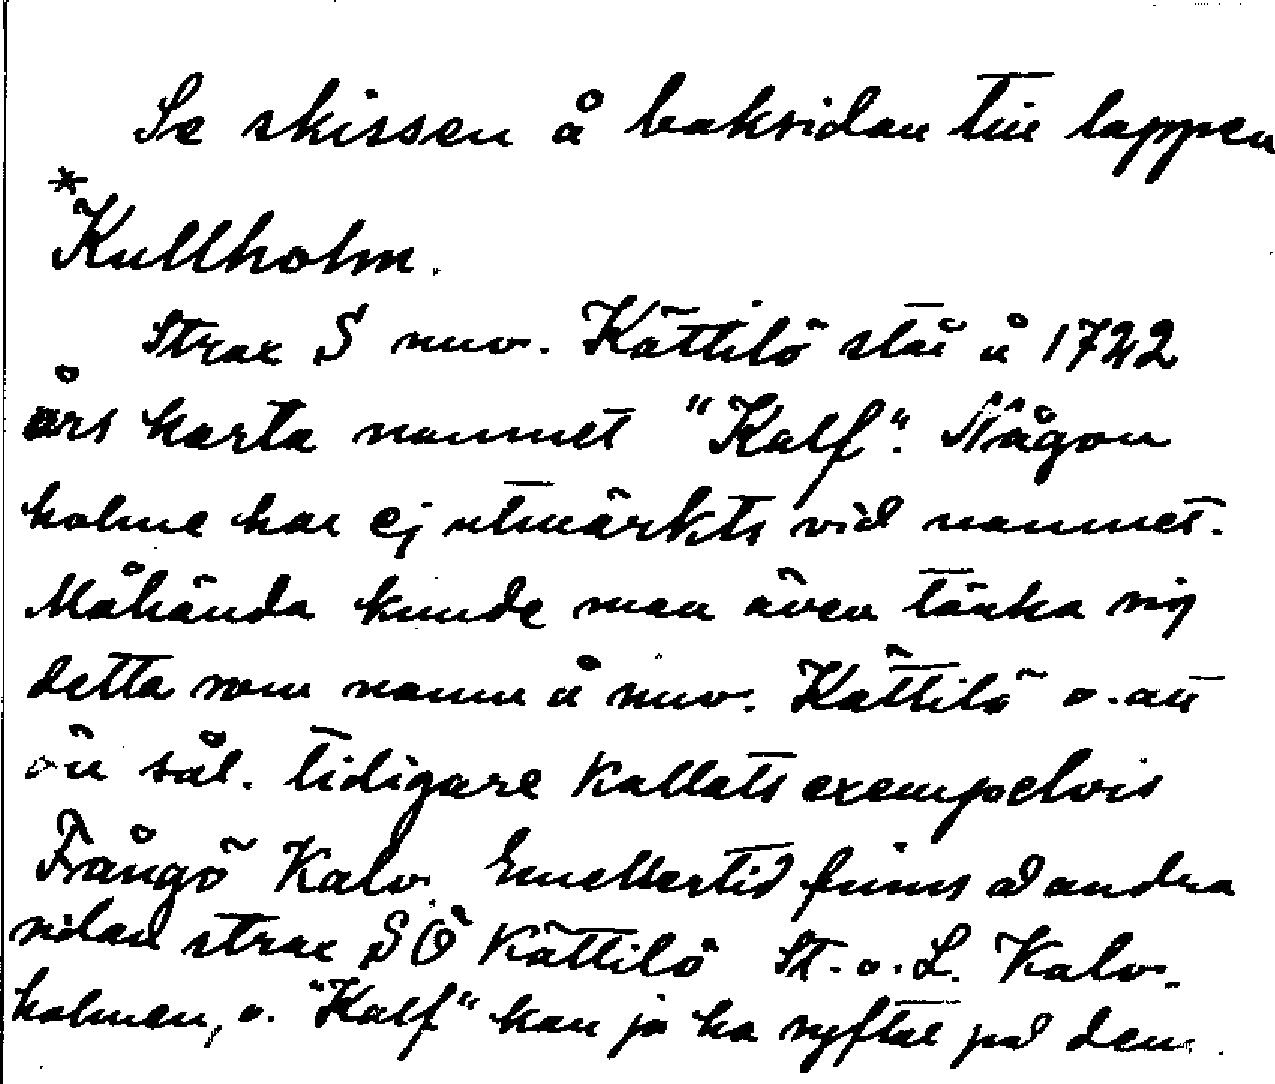 Se skissen å baksidan till lappen
*Kullholm.
Strax S nuv. Kättilö står å 1722
års karta namnet "Kalf". Någon
holme har ej utmärkts vid namnet.
Måhända kunde man även tänka sig
detta som namn å nuv. Kättilö o. att
ön sål. tidigare kallats exempelvis
Frångö Kalv. Emellertid finns å andra
sidan strax SÖ Kättilö St. o. L. Kalv-
holmen, o. "Kalf" kan ju ha syftat på den.